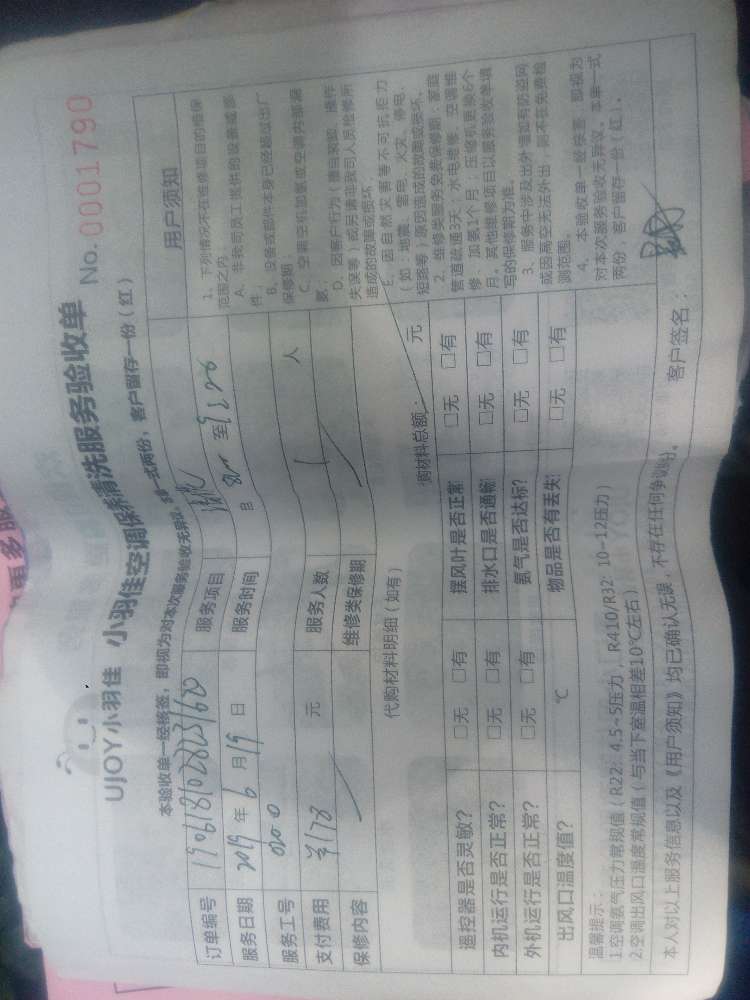 UJOY小羽佳 小羽佳空调保养清洗服务验收单 No. 0001790
本验收单一经核签，即视为对本次服务验收无异议，本单一式两份，客户留存一份（红）
订单编号
服务项目 清洗
服务日期 2019 年 6 月 19 日
服务时间 日 至
服务工号
支付费用 ¥178 元
服务人数 1 人
保修内容
维修类保修期
代购材料明细（如有）
购材料总额： 元
遥控器是否灵敏？ □无 □有 摆风叶是否正常 □无 □有
内机运行是否正常？ □无 □有 排水口是否通畅 □无 □有
外机运行是否正常？ □无 □有 氨气是否达标？ □无 □有
出风口温度值？ ℃ 物品是否有丢失 □无 □有
温馨提示：
1.空调氨气压力常规值（R22：4.5~5压力，R410/R32：10-12压力）
2.空调出风口温度常规值（与当下室温相差10℃左右）
本人对以上服务信息以及《用户须知》均已确认无误，不存在任何争议。
客户签名：
用户须知
1、下列情况不在维修项目的维保
范围之内：
A、非我司员工提供的设备或部
件；
B、设备或部件本身已经超过出厂
保修期；
C、空调空机加氨或空调内部漏
氨；
D、因客户行为（擅自移动、操作
失误等）或另请非我司人员检修所
造成的故障或损坏；
E、因自然灾害等不可抗拒力
（如：地震、雷电、火灾、停电、
短路等）原因造成的故障或损坏。
2、维修类服务免费保修期：家庭
管道疏通3天；水电维修、空调维
修、加氨1个月，压缩机更换6个
月。其他维修项目以服务验收单填
写的保修期为准。
3、服务中涉及出外墙如有防盗网
或因高空无法外出，则不在免费检
测范围。
4、本验收单一经核签，即视为
对本次服务验收无异议。本单一式
两份，客户留存一份（红）。